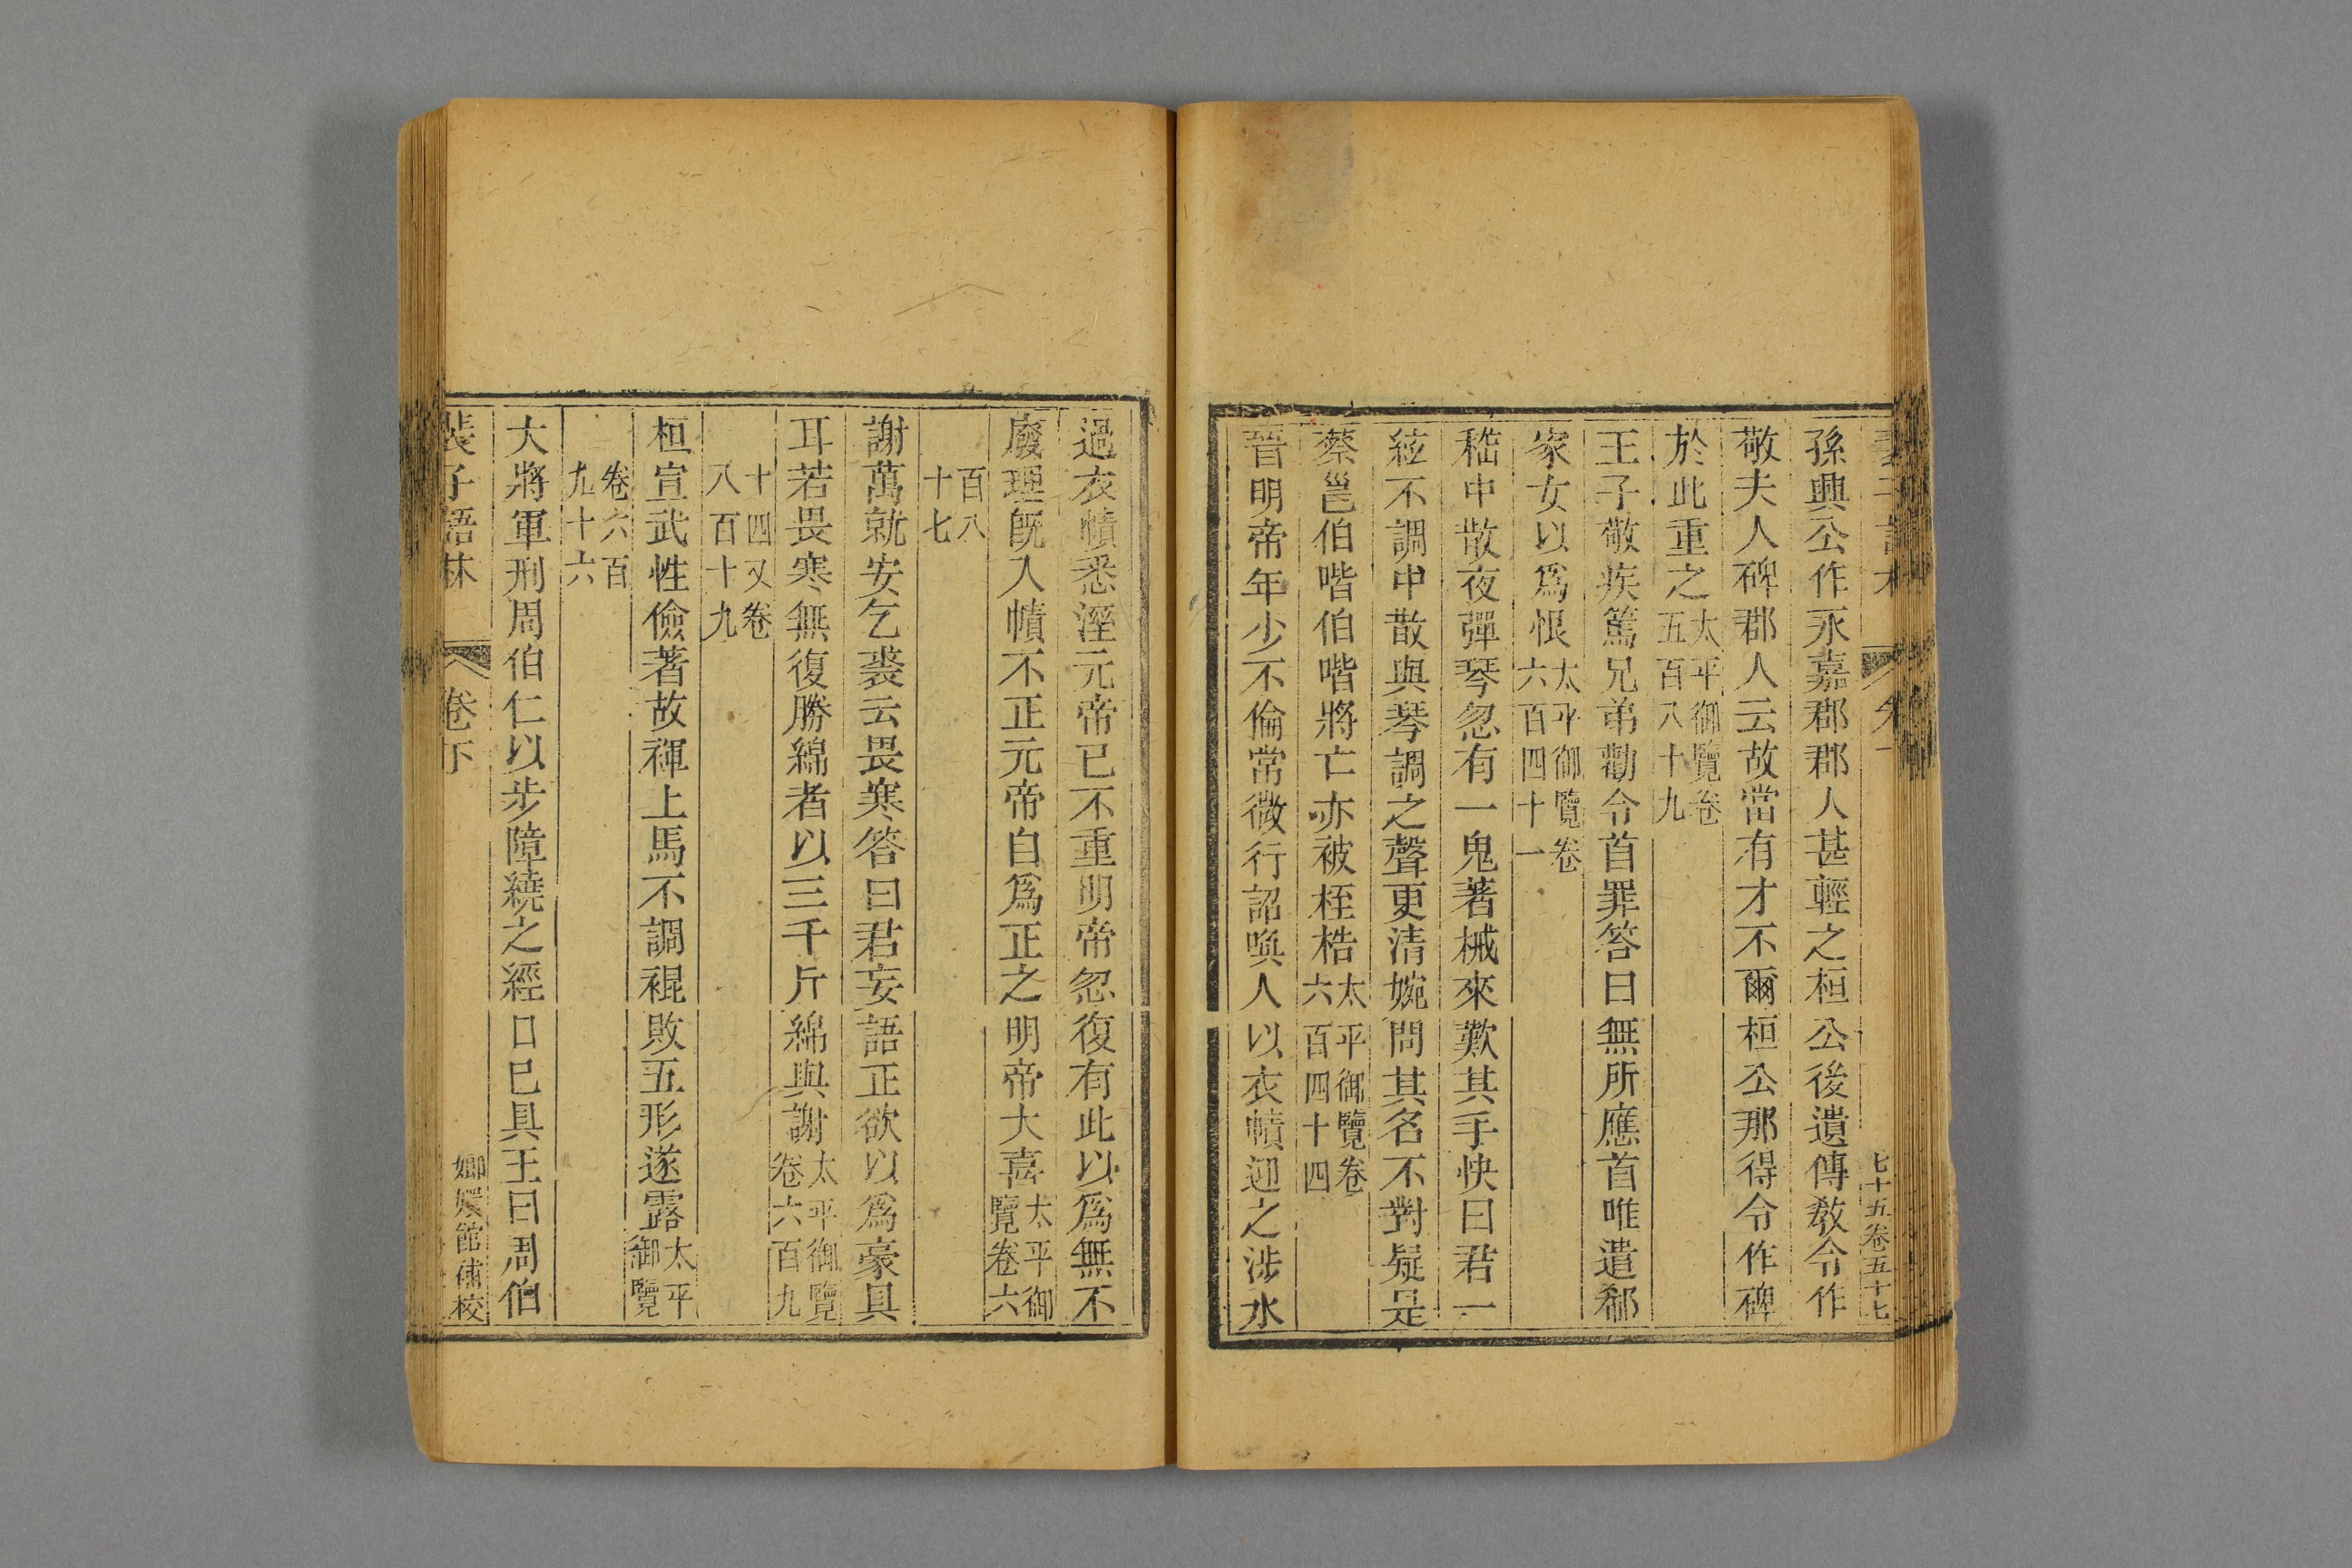 七十五卷五十七
孫興公作永嘉郡郡人甚輕之桓公後遺傳教令作
敬夫人碑郡人云故當有才不爾桓公那得令作碑
於此重之太平御覽卷五百八十九
王子敬疾篤兄弟勸令首罪答曰無所應首唯遣郗
家女以爲恨太平御覽卷六百四十一
嵇中散夜彈琴忽有一鬼著械來歎其手快曰君一
絃不調中散與琴調之聲更清婉問其名不對疑是
蔡邕伯喈伯喈將亡亦被桎梏太平御覽卷六百四十四
晉明帝年少不倫常微行詔喚人以衣幘迎之涉水
過衣幘悉溼元帝已不重明帝忽復有此以爲無不
廢理旣入幘不正元帝自爲正之明帝大喜太平御覽卷六
百八十七
謝萬就安乞裘云畏寒答曰君妄語正欲以爲豪具
耳若畏寒無復勝綿者以三千斤綿與謝太平御覽卷六百九
十四又卷八百十九
桓宣武性儉著故褌上馬不調裩敗五形遂露太平御覽
卷六百九十六
大將軍刑周伯仁以步障繞之經口已具王曰周伯
裴子語林 卷下 嫏嬛館補校